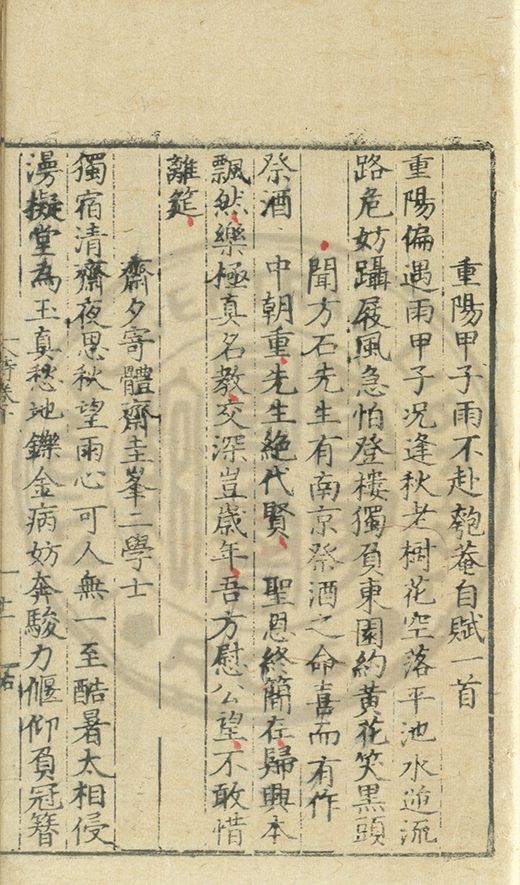 重陽甲子雨不赴匏菴自賦一首
重陽偏遇雨甲子况逢秋老樹花空落平池水逆流
路危妨躡屐風急怕登樓獨負東園約黄花笑黒頭
聞方石先生有南京祭酒之命喜而有作
祭酒　中朝重先生絶代賢　聖恩終簡在歸興本
飄然樂極真名教交深豈歳年吾方慰公望不敢惜
離筵
齋夕寄體齋圭峯二學士
獨宿清齋夜思秋望雨心可人無一至酷暑太相侵
漫擬堂為玉真愁地鑠金病妨奔駿力偃仰負冠簪